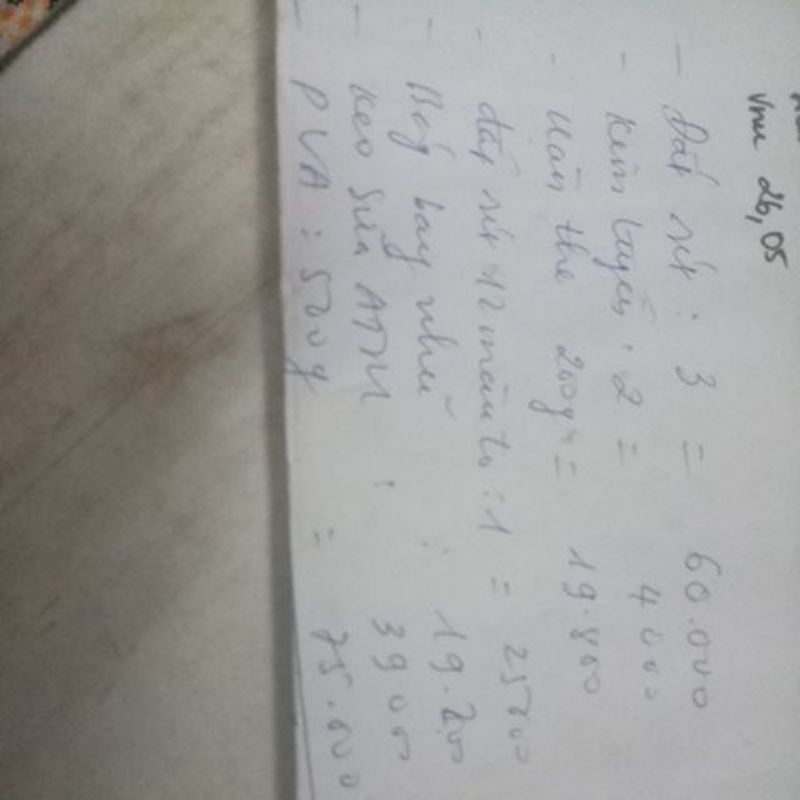 vnu 26,05
- Đất sét : 3 = 60.000
- Kẽm tuyến : 2 = 4000
- Hàn the 200g = 19.800
- đất sét 12 màu to : 1 = 25000
- Bột bay nhũ : 19.200
- Keo sữa ATM : 39000
- PVA : 500g = 75.000